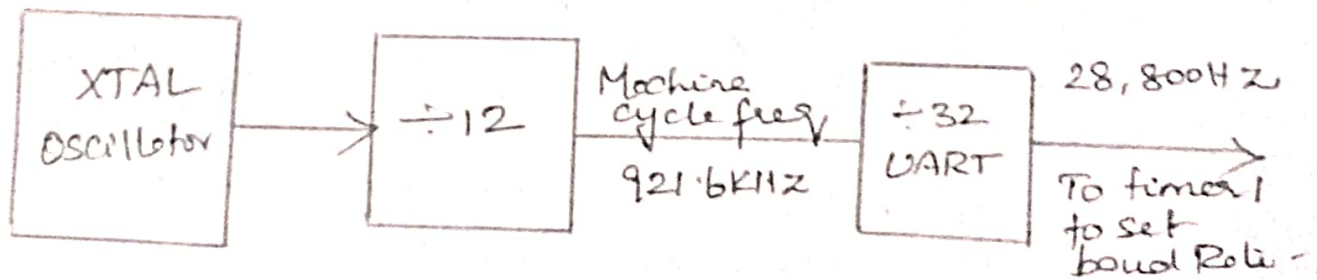 XTAL
Oscillator
÷12
Machine
cycle freq
921.6KHz
÷32
UART
28,800Hz
To timer 1
to set
baud Rate -